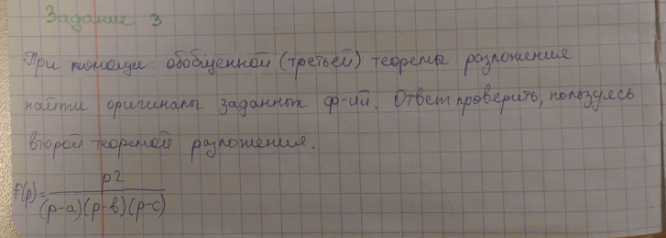 Задание 3
При помощи обобщенной (третьей) теоремы разложения
найти оригиналы заданных ф-ий. Ответ проверить, пользуясь
второй теоремой разложения.
F(p) = p2 / (p-a)(p-в)(p-c)